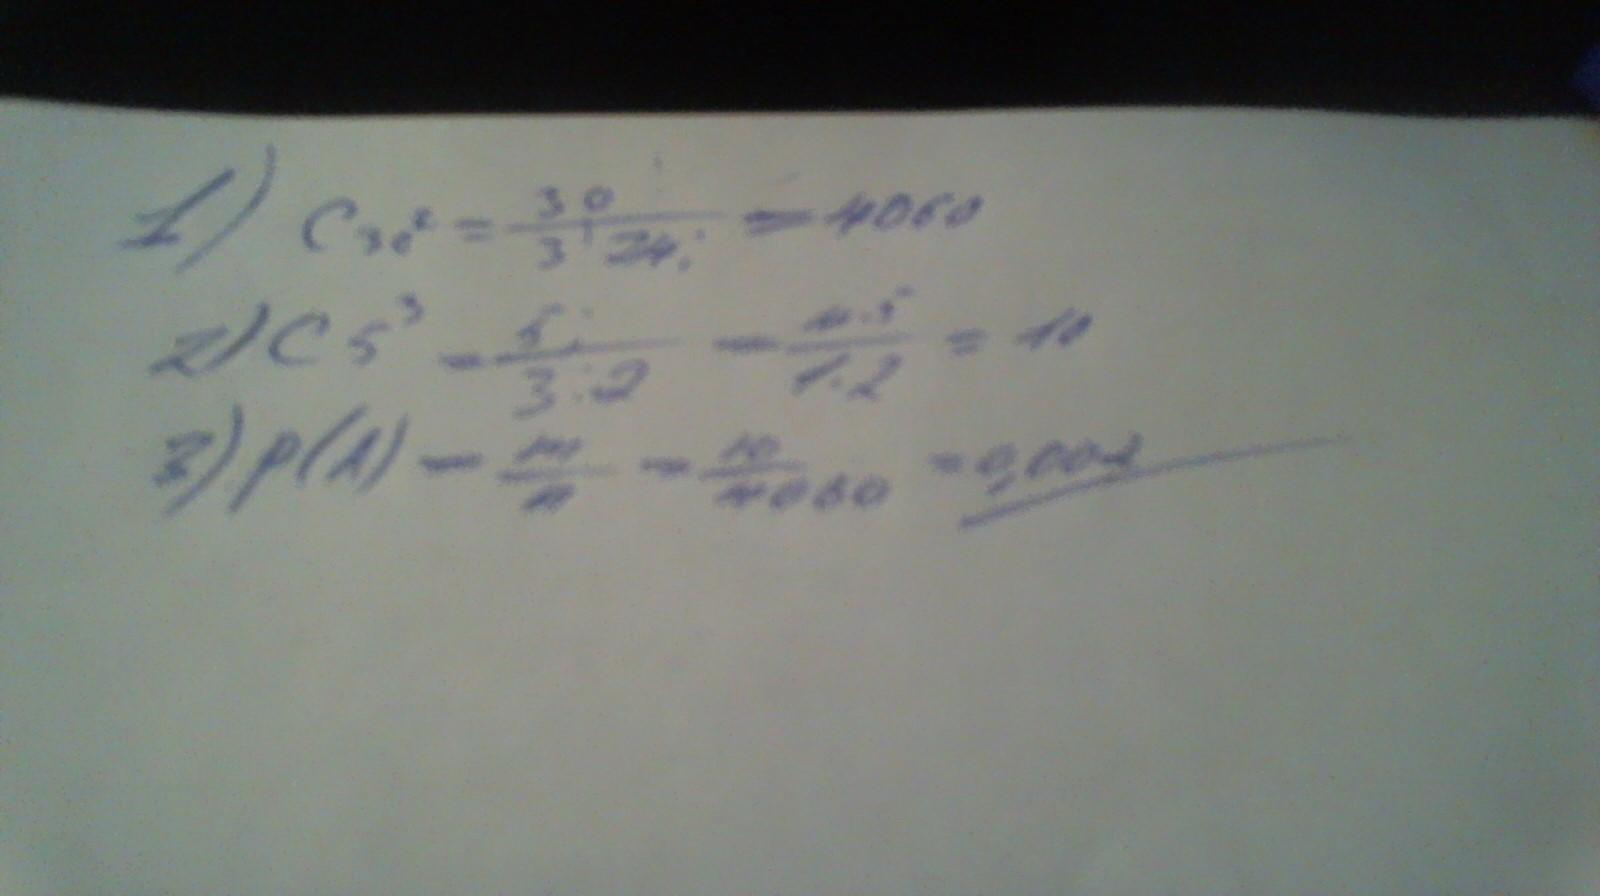 1) C₃₀² = 30 / 3! 24! = 4060
2) C5³ = 5! / 3!2 = 4·5 / 1·2 = 10
3) P(A) = m / n = 10 / 4060 = 0,002